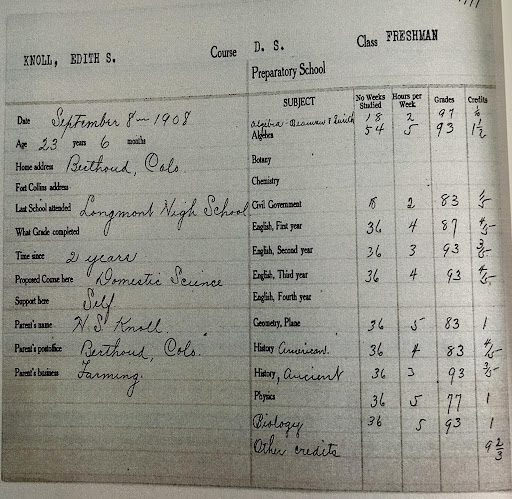 KNOLL, EDITH S. Course D. S. Class FRESHMAN
Preparatory School
SUBJECT No Weeks Studied Hours per Week Grades Credits
Date September 8— 1908
Age 23 years 6 months
Home address Berthoud, Colo
Fort Collins address
Last School attended Longmont High School
What Grade completed
Time since 2 years
Proposed Course here Domestic Science
Support here Self
Parent's name N. S. Knoll.
Parent's postoffice Berthoud, Colo.
Parent's business Farming.
Algebra 18 2 97
Algebra 54 5 93 1 1/2
Botany
Chemistry
Civil Government 18 2 83
English, First year 36 4 87 4/5
English, Second year 36 3 93 3/5
English, Third year 36 4 93 4/5
English, Fourth year
Geometry, Plane 36 5 83 1
History American. 36 4 83 4/5
History, Ancient 36 3 93 3/5
Physics 36 5 77 1
Biology 36 5 93 1
Other credits 9 2/3